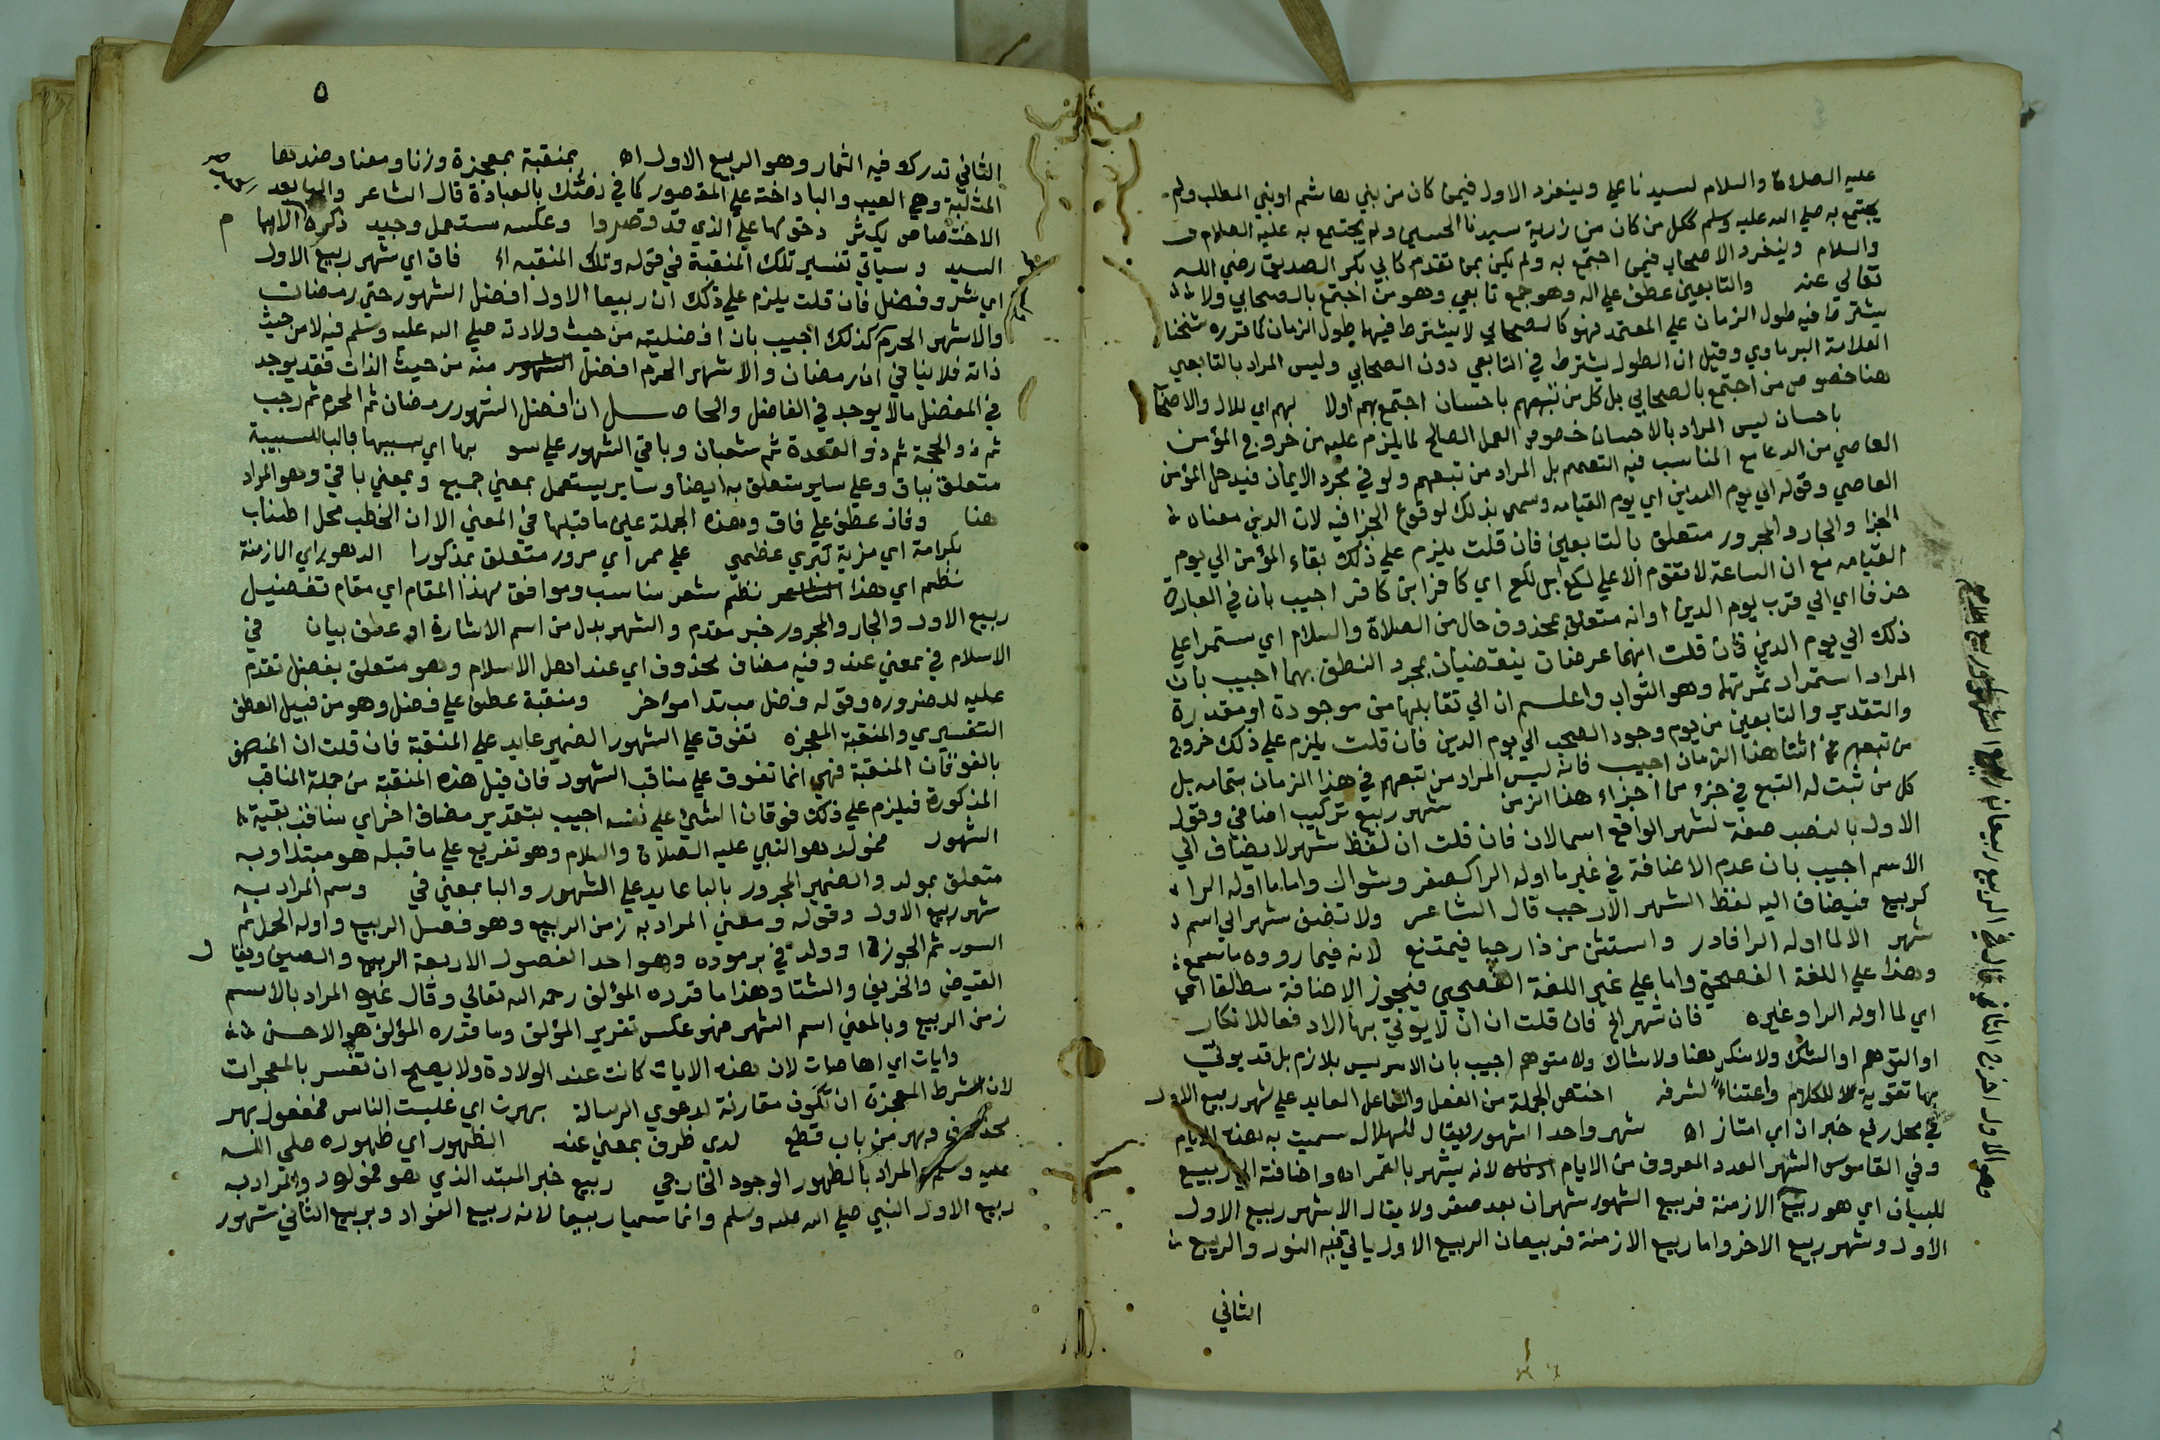 عليه الصلاة والسلام لسيدنا علي وينفرد الاول فيمن كان من بني هاشم اوبني المطلب ولم
يجتمع به صلي الله عليه وسلم ككل من كان من زرية سيدنا الحسين ولم يجتمع به عليه الصلاة
والسلام وينفرد الاصحاب فيمن اجتمع به ولم يكن بمن تقدم كابي بكر الصديق رضي الله
تعالي عنه والتابعين عطف علي اله وهو جمع تابعي وهو من اجتمع بالصحابي ولا
يشترط فيه طول الزمان علي المعتمد فهو كالصحابي لا يشترط فيها طول الزمان كما قرره شيخنا
العلامة البرماوي وقيل ان الطول يشترط في التابعي دون الصحابي وليس المراد بالتابعي
هنا خصوص من اجتمع بالصحابي بل كل من تبعهم باحسان اجتمع بهم اولا بهم اي للال والاصحاب
باحسان ليس المراد بالاحسان خصوص العمل الصالح لما يلزم عليه من خروج المؤمن
العاصي من الدعا مع المناسب فيه التعميم بل المراد من تبعهم ولو في مجرد الايمان فيدخل المؤمن
العاصي وقوله الي يوم الدين اي يوم القيامه وسمي بذلك لوقوع الجزا فيه لان الدين معناه
الجزا والجار والمجرور متعلق بالتابعين فان قلت يلزم علي ذلك بقاء المؤمن الي يوم
القيامه مع ان الساعة لا تقوم الا علي لكع ابن لكع اي كافر ابن كافر اجيب بان في العبارة
حذفا اي الي قرب يوم الدين اوانه متعلق بمحذوف حال من الصلاة والسلام اي ستمرا علي
ذلك الي يوم الدين فان قلت انهما عرضان ينقضيان بمجرد النطق بهما اجيب بان
المراد استمرار ثمرتها وهو الثواب واعلم ان الي تقابلها من موجودة او مقدرة
والتقدير والتابعين من يوم وجود الصحب الي يوم الدين فان قلت يلزم علي ذلك خروج
من تبعهم في اثنا هذا الزمان اجيب فانه ليس المراد من تبعهم في هذا الزمان بتمامه بل
كل من ثبت له التبع في جزء من اجزاء هذا الزمن شهر ربيع تركيب اضافي وقوله
الاول بالنصب صفة لشهر الواقع اسما لان فان قلت ان لفظ شهر لا يضاف الي
الاسم اجيب بان عدم الاضافة في غير ما اوله الرا كصفر وشوال واما ما اوله الرا
كربيع فيضاف اليه لفظ الشهر الا رجب قال الشاعر ولا تضف شهرا لي اسم
شهر الا لما اوله الرا فادر واستثن من ذا رجبا فيمتنع لانه فيما رووه ما سمع
وهذا علي اللغة الفصحي واما علي غير اللغة الفصحي فتجوز الاضافة مطلقا اي
اي لما اوله الرا وغيره فان شهر الخ فان قلت ان ان لا يؤتي بها الا دفعا للانكار
او التوهم او الشك ولا منكر هنا ولا شاك ولا متوهم اجيب بان الامر ليس بلازم بل قد يؤتي
بها تقوية للكلام واعتناءً لشرفه اختص الجملة من الفعل والفاعل العايد علي شهر ربيع الاول
في محل رفع خبر ان اي امتاز اه شهر واحد الشهور ويقال للهلال سميت به هذه الايام
وفي القاموس الشهر العدد المعروف من الايام لانه يشهر بالقمر اه واضافة الي ربيع
للبيان اي هو ربيع الازمنة فربيع الشهور شهران بعد صفر ولا يقال الا شهر ربيع الاول
الاول وشهر ربيع الاخر واما ربيع الازمنة فربيعان الربيع الاول ياتي فيه النور والربيع
الثاني
٥
الثاني تدرك فيه الثمار وهو الربيع الاول اه بمنقبة بمعجزة وزنا ومعنا وضدها
المثلبة وهي العيب والبا داخلة علي المقصور كما في خصتك بالعبادة قال الشاعر والبا بعد
الاختصاص يكثر دخولها علي الذي قد قصروا وعكسه مستعمل وجيد ذكره الامام
السيد وسياتي تفسير تلك المنقبة في قوله وتلك المنقبه اه فاق اي شهر ربيع الاول
اي شرف وفضل فان قلت يلزم علي ذلك ان ربيعا الاول افضل الشهور حتي رمضان
والاشهر الحرم كذلك اجيب بان افضليته من حيث ولادته صلي الله عليه وسلم فيه لا من حيث
ذاته فلا ينافي ان رمضان والاشهر الحرم افضل منه من حيث الذات فقد يوجد
في المفضول ما لا يوجد في الفاضل والحاصل ان افضل الشهور رمضان ثم المحرم ثم رجب
ثم ذو الحجة ثم ذو القعدة ثم شعبان وباقي الشهور علي سو بها اي بسببها فالبا للسببية
متعلق بباق وعلي ساير متعلق به ايضا وساير يستعمل بمعني جميع وبمعني باقي وهو المراد
هنا وفاق عطف علي فاق وهذه الجملة عين ما قبلها في المعني الا ان الخطب محل اطناب
بكرامة اي مزية كبري عظمي علي ممر اي مرور متعلق بمذكورا الدهور اي الازمنة
نظم اي هذا نظم شعر مناسب وموافق لهذا المقام اي مقام تفضيل
ربيع الاول والجار والمجرور خبر مقدم والشهر بدل من اسم الاشارة او عطف بيان في
الاسلام في بمعني عند وفيه مضاف محذوف اي عند اهل الاسلام وهو متعلق بفضل تقدم
عليه للضروره وقوله فضل مبتدا مؤخر ومنقبة عطف علي فضل وهو من قبيل العطف
التفسيري والمنقبة المعجزه تفوق علي الشهور الضمير عايد علي المنقبة فان قلت ان المتصف
بالفوقان المنقبة فهي انما تفوق علي مناقب الشهور فان قيل هذه المنقبة من جملة المناقب
المذكورة فيلزم علي ذلك فوقان الشئ علي نفسه اجيب بتقدير مضاف اخر اي مناقب بقية
الشهور فمولد هو النبي عليه الصلاة والسلام وهو تفريع علي ما قبله هو مبتدا وبه
متعلق بمولد والضمير المجرور بالبا عايد علي الشهور والبا بمعني في وسم المراد به
شهر ربيع الاول وقوله ومعني المراد به زمن الربيع وهو فصل الربيع واوله الحمل ثم
الثور ثم الجوزا وولد في برموده وهو احد الفصول الاربعة الربيع والصيف ويقال
القيض والخريف والشتا وهذا ما قرره المؤلف رحمه الله تعالي وقال غيره المراد بالاسم
زمن الربيع وبالمعني اسم الشهر فهو عكس تقرير المؤلف وما قرره المؤلف هو الاحسن
وايات اي ارهاصات لان هذه الايات كانت عند الولادة ولا يصح ان تفسر بالمعجزات
لان شرط المعجزة ان تكون مقارنة لدعوي الرسالة بهرن اي غلبت الناس فمفعول بهر
محذوف وبهر من باب قطع لدي ظرف بمعني عند الظهور اي ظهوره صلي الله
عليه وسلم المراد بالظهور الوجود الخارجي ربيع خبر المبتدا الذي هو فمولود والمراد به
ربيع الاول النبي صلي الله عليه وسلم وانما سميا ربيعا لانه ربيع الفواد وبربيع الثاني شهور